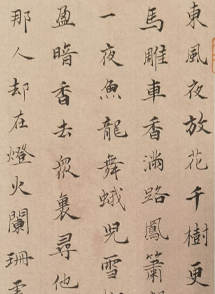 東風夜放花千樹更
馬雕車香滿路鳳簫
一夜魚龍舞蛾兒雪
盈暗香去衆裏尋他
那人却在燈火闌珊